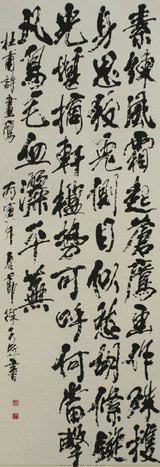 素練風霜起蒼鷹畫作殊㩳
身思狡兔側目似愁胡絛鏇
光堪摘軒楹勢可呼何當擊
凡鳥毛血灑平蕪
杜甫詩畫鷹 丙寅年春節徐書